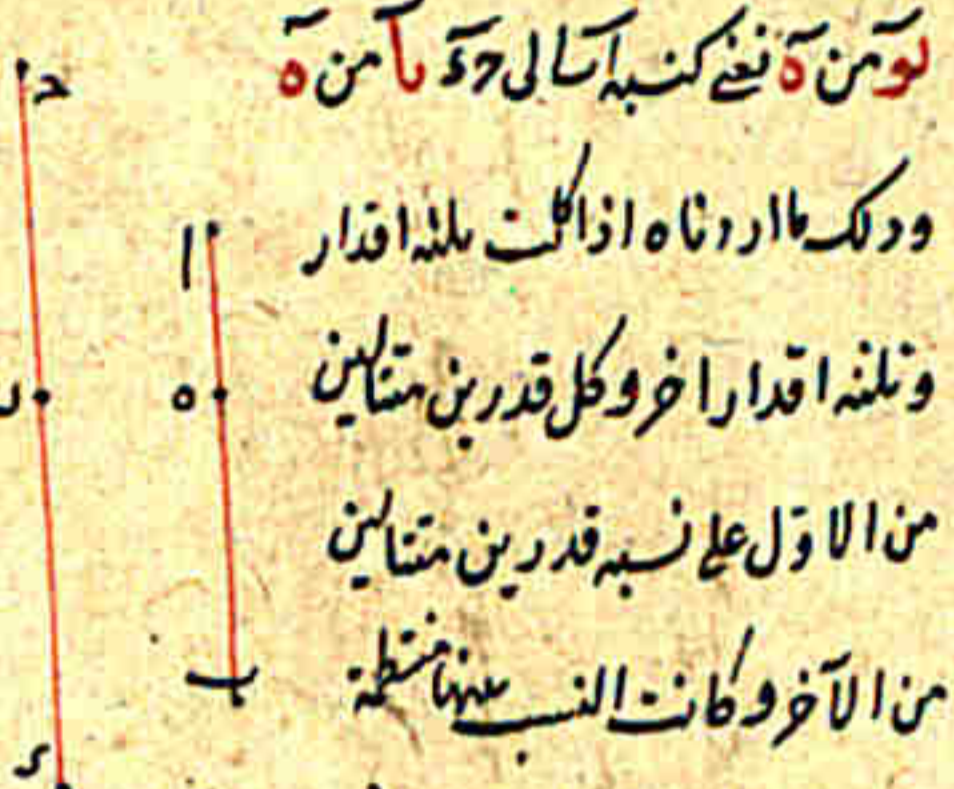 يو من ه نفي كنسبة اب الى حد يا من ه
وذلك ما اردناه اذا كانت ثلثه اقدار
وثلثه اقدار اخر وكل قدرين متتاليين
من الاوّل على نسبه قدرين متتاليين
من الآخر وكانت النسب بينها منتظمة
ا
ه
ب
ح
ر
ء